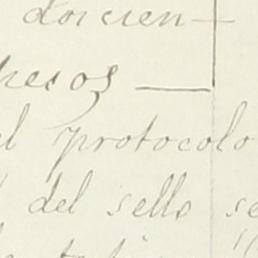 doicien—
pesos —
el protocolo
del sello se